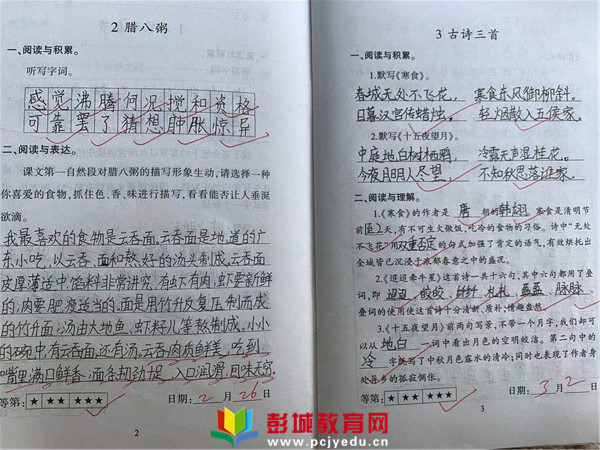 2 腊八粥
一、阅读与积累。
听写字词。
感觉沸腾何况搅和资格
可靠罢了猜想肿胀惊异
二、阅读与表达。
课文第一自然段对腊八粥的描写形象生动，请选择一种
你喜爱的食物，抓住色、香、味进行描写，看看能否让人垂涎
欲滴。
我最喜欢的食物是云吞面，云吞面是地道的广
东小吃，以云吞、面和熬好的汤头制成。云吞面
皮厚薄适中，馅料非常讲究，有虾有肉，虾要新鲜
的，肉要肥瘦适当的，面是用竹升反复压制而成
的竹升面，汤由大地鱼、虾籽儿等熬制成。小小
的碗中，有云吞面，还有汤，云吞肉质鲜美，吃到
嘴里满口鲜香，面条韧劲捏，入口润滑，回味无穷。
等第：★ ★★ ★★★ 日期：2月26日
2
3 古诗三首
一、阅读与积累。
1.默写《寒食》。
春城无处不飞花，寒食东风御柳斜。
日暮汉宫传蜡烛，轻烟散入五侯家。
2.默写《十五夜望月》。
中庭地白树栖鸦，冷露无声湿桂花。
今夜月明人尽望，不知秋思落谁家。
二、阅读与理解。
1.《寒食》的作者是唐朝的韩翃。寒食是清明节
前，有不可生火做饭，吃冷的食物的习俗。诗中“无处
不飞花”用双重否定的句式加强了肯定的语气，有效烘托出
全城皆已沉浸于浓郁春意之中的盛况。
2.《迢迢牵牛星》这首诗一共十六句，其中六句都用了叠
词，即迢迢、皎皎、纤纤、札札、盈盈、脉脉。
叠词的使用使这首诗十分清丽、质朴，情趣盎然。
3.《十五夜望月》前两句写景，不带一个月字，我们却可
以从地白一词中看出月色的空明皎洁。第二句中的
冷字既写了中秋月色露水的清冷；同时也表现了作者身
处异乡的孤寂惆怅。
等第：★ ★★ ★★★ 日期：3月2日
3
彭城教育网
www.pcjyedu.cn